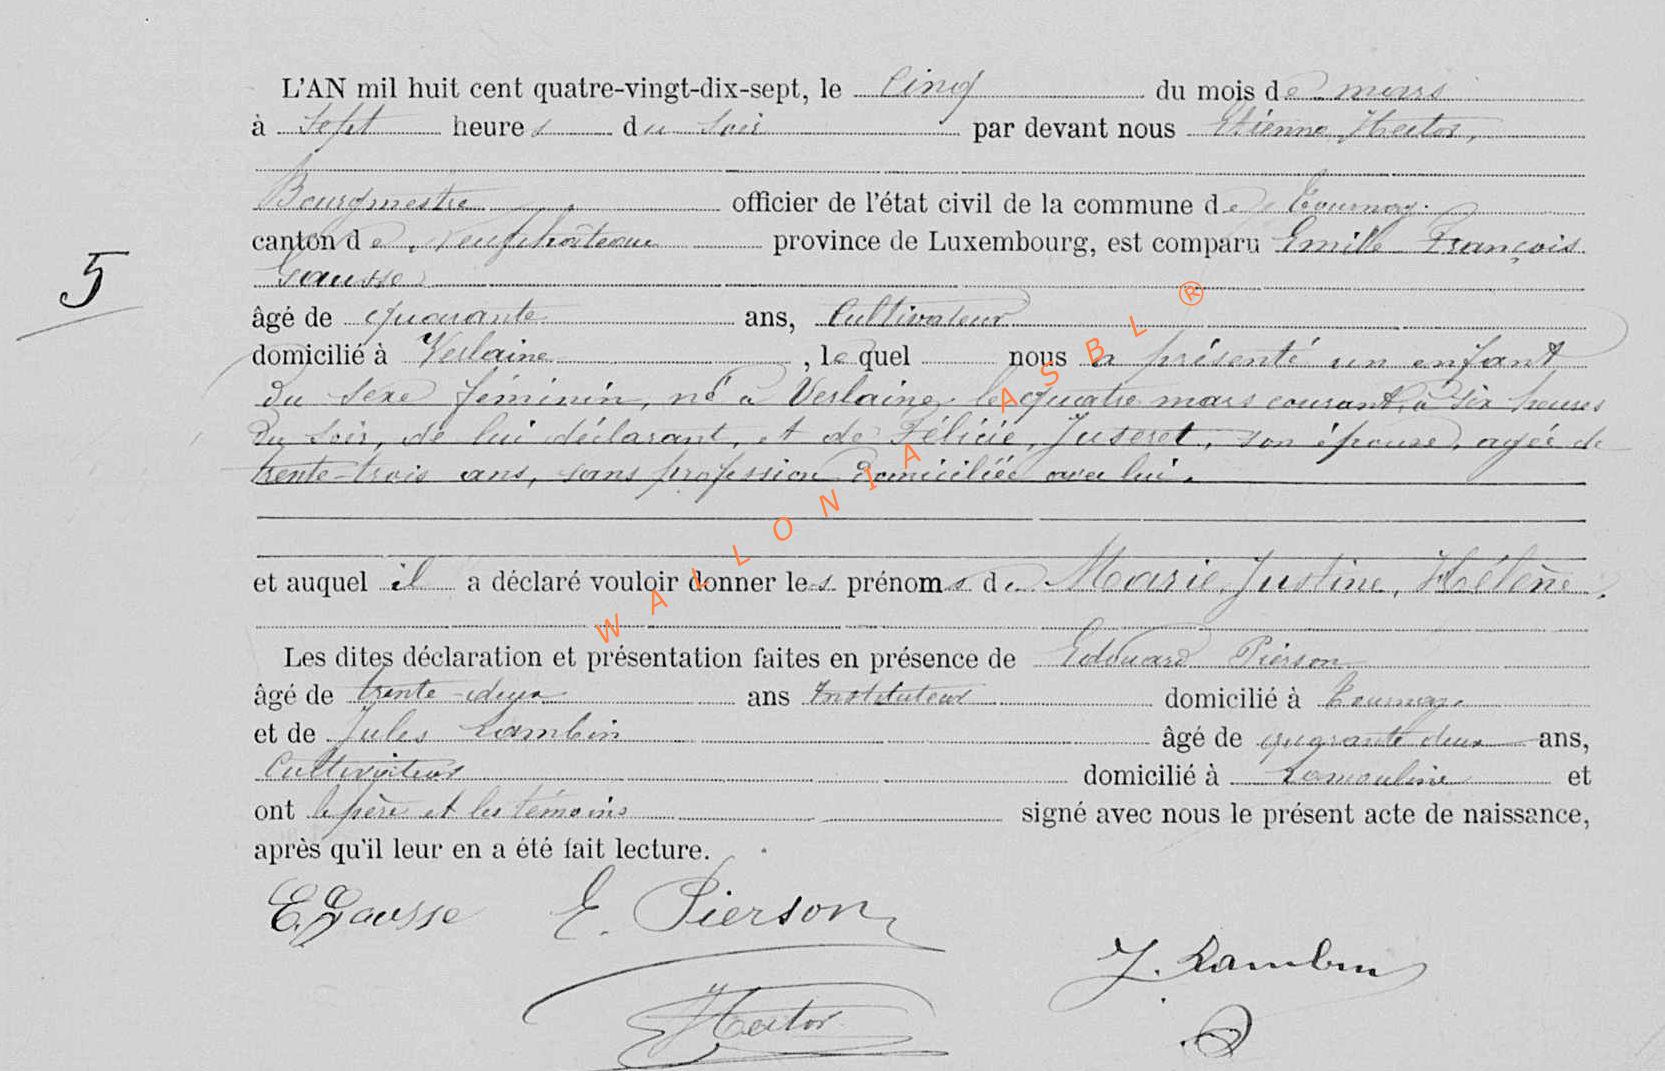 L'AN mil huit cent quatre-vingt-dix-sept, le cinq du mois de mars
à sept heures du soir par devant nous Etienne, Hector,
Bourgmestre officier de l'état civil de la commune de Tournay.
canton de Neufchâteau province de Luxembourg, est comparu Emile François
Gausse
5
âgé de quarante ans, Cultivateur
domicilié à Verlaine, lequel nous a présenté un enfant
du sexe féminin, né à Verlaine, le quatre mars courant, à six heures
du soir, de lui déclarant, et de Félicie, Juseret, son épouse, agée de
trente-trois ans, sans profession domiciliée avec lui.
et auquel il a déclaré vouloir donner les prénoms de Marie, Justine, Hélène.
Les dites déclaration et présentation faites en présence de Edouard Pierson
âgé de trente-deux ans Instituteur domicilié à Tournay
et de Jules Lambin âgé de quarante deux ans,
Cultivateur domicilié à Lamouline et
ont le père et les témoins signé avec nous le présent acte de naissance,
après qu'il leur en a été fait lecture.
E. Gausse E. Pierson
J. Lambin
Hector
WALLONIA ASBL ®